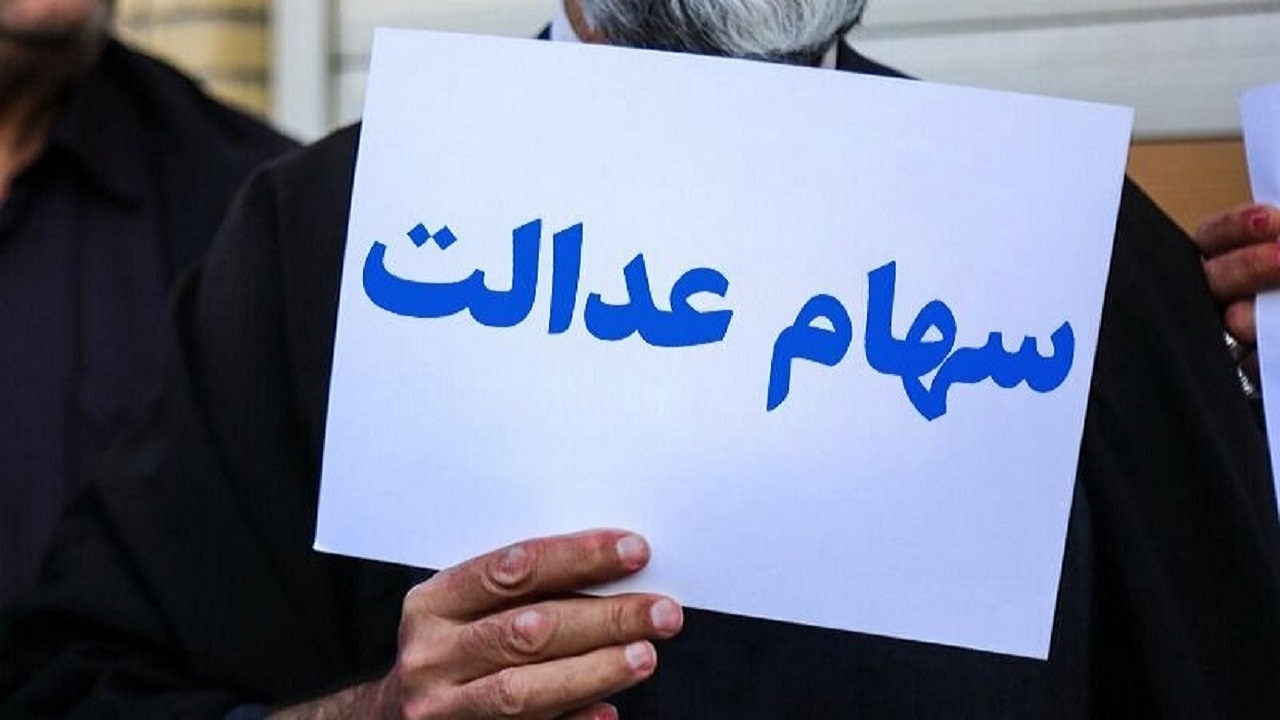 سهام عدالت